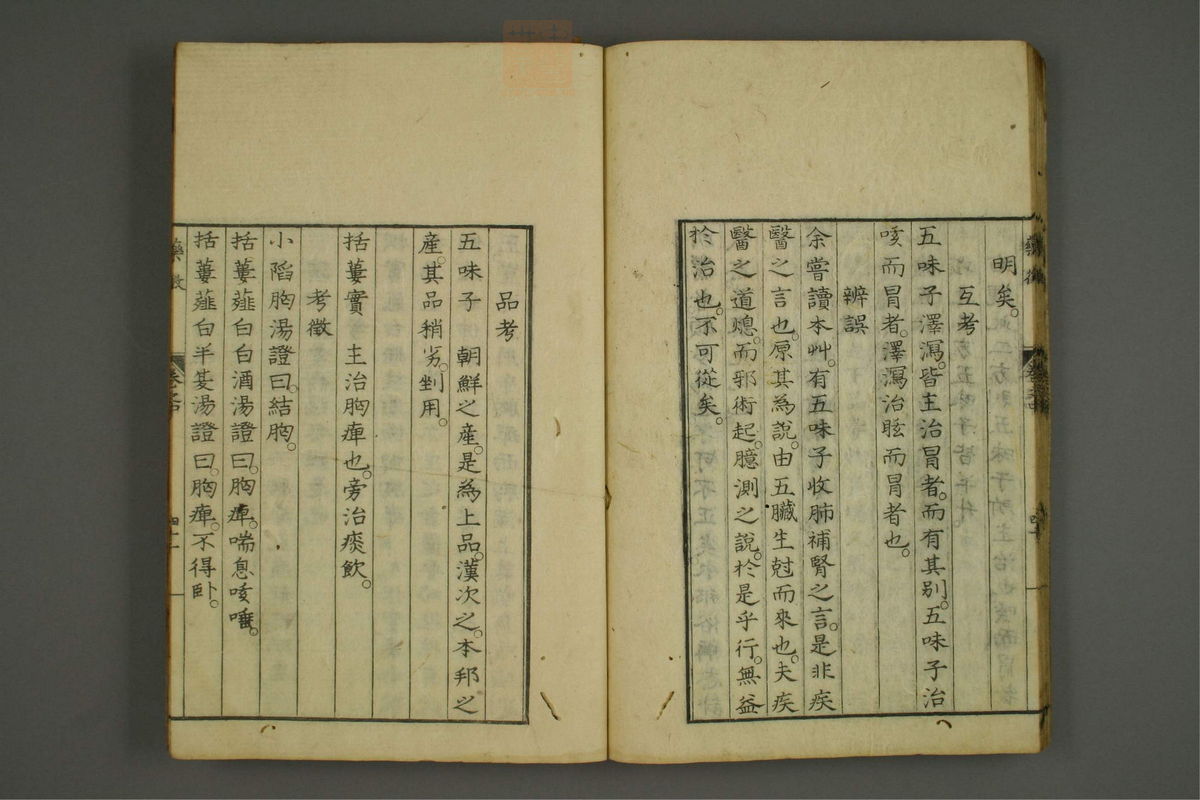 明矣。
互考
五味子澤瀉。皆主治冒者。而有其別。五味子治
咳而冒者。澤瀉治眩而冒者也。
辨誤
余嘗讀本艸。有五味子收肺補腎之言。是非疾
醫之言也。原其為說。由五臟生尅而來也。夫疾
醫之道熄。而邪術起。臆測之說。於是乎行。無益
於治也。不可從矣。
品考
五味子 朝鮮之產。是為上品。漢次之。本邦之
產。其品稍劣。剉用。
括蔞實 主治胸痺也。旁治痰飲。
考徵
小陷胸湯證曰。結胸。
括蔞薤白白酒湯證曰。胸痺。喘息咳唾。
括蔞薤白半夏湯證曰。胸痺。不得卧。
藥徵